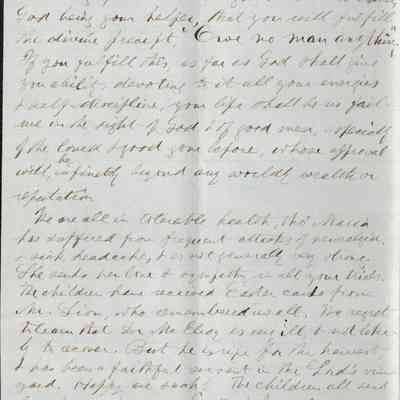 God being your helper, that you will fulfill
the divine precept, "Owe no man any thing,"
If you fulfill this, as far as God shall give
you ability, devoting to it all your energies
& self-discipline, your life shall be no fail-
ure in the sight of God & of good men, especially
of the loved & good gone before, whose approval
will be infinitely beyond any worldly wealth or
reputation.
We are all in tolerable health, tho' Maria
has suffered from frequent attacks of neuralgia,
& sick headaches, & is not generally very strong.
She sends her love & sympathy in all your trials.
The children have received Easter cards from
Mr. Lion, who remembered us all. We regret
to learn that Dr. McElroy is very ill & not likely
to recover. But he is ripe for the harvest,
& has been a faithful servant in the Lord's vine
yard. Happy are such! The children all send